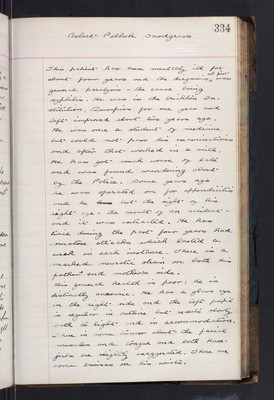 334
Robert Pollock Snodgrass
This patient has been mentally ill for
about four years and the diagnosis, at first, was
general paralysis - the cause being
syphilis. He was in the Crichton In-
stitution Dumfries for one year and
left improved about two years ago.
He was once a student of medicine
but could not pass his examinations
and after that worked in a mill.
He has got much worse of late
and was found wandering about
by the Police. Some years ago
he was operated on for appendicitis
and he lost the sight of his
right eye - the result of an accident -
and it was extracted. He has
twice during the past four years had
attacks which lasted a
week in each instance. There is a
marked neurotic strain on both his
father's and mother's side.
His general health is poor: he is
distinctly anaemic. He has a glass eye
on the right side and the left pupil
is regular in outline but reacts slowly
both to light and in accommodation.
There is some tremor about the facial
muscles and tongue and both knee
jerks are slightly exaggerated. There are
some bruises on his